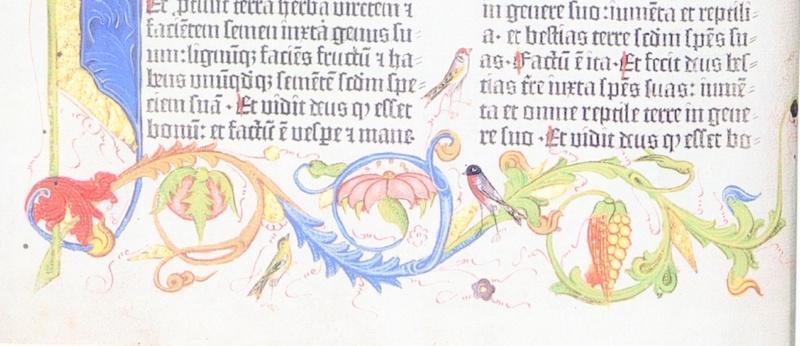 Et ꝓtulit terra herbā virētem ⁊
faciētem semen iuxta genus su⸗
um: lignūq; faciēs fructū ⁊ ha⸗
bēs unūqdq; semētē scdm spe⸗
ciem suā · Et vidit deus ꝙ esset
bonū: et factū ē vespe ⁊ mane
in genere suo: iumēta et reptili⸗
a · et bestias terre scdm spēs su⸗
as · Factū ē ita · Et fecit deus bes⸗
tias tre iuxta spēs suas: iumē⸗
ta et omne reptile terre in gene⸗
re suo · Et vidit deus ꝙ esset bo⸗